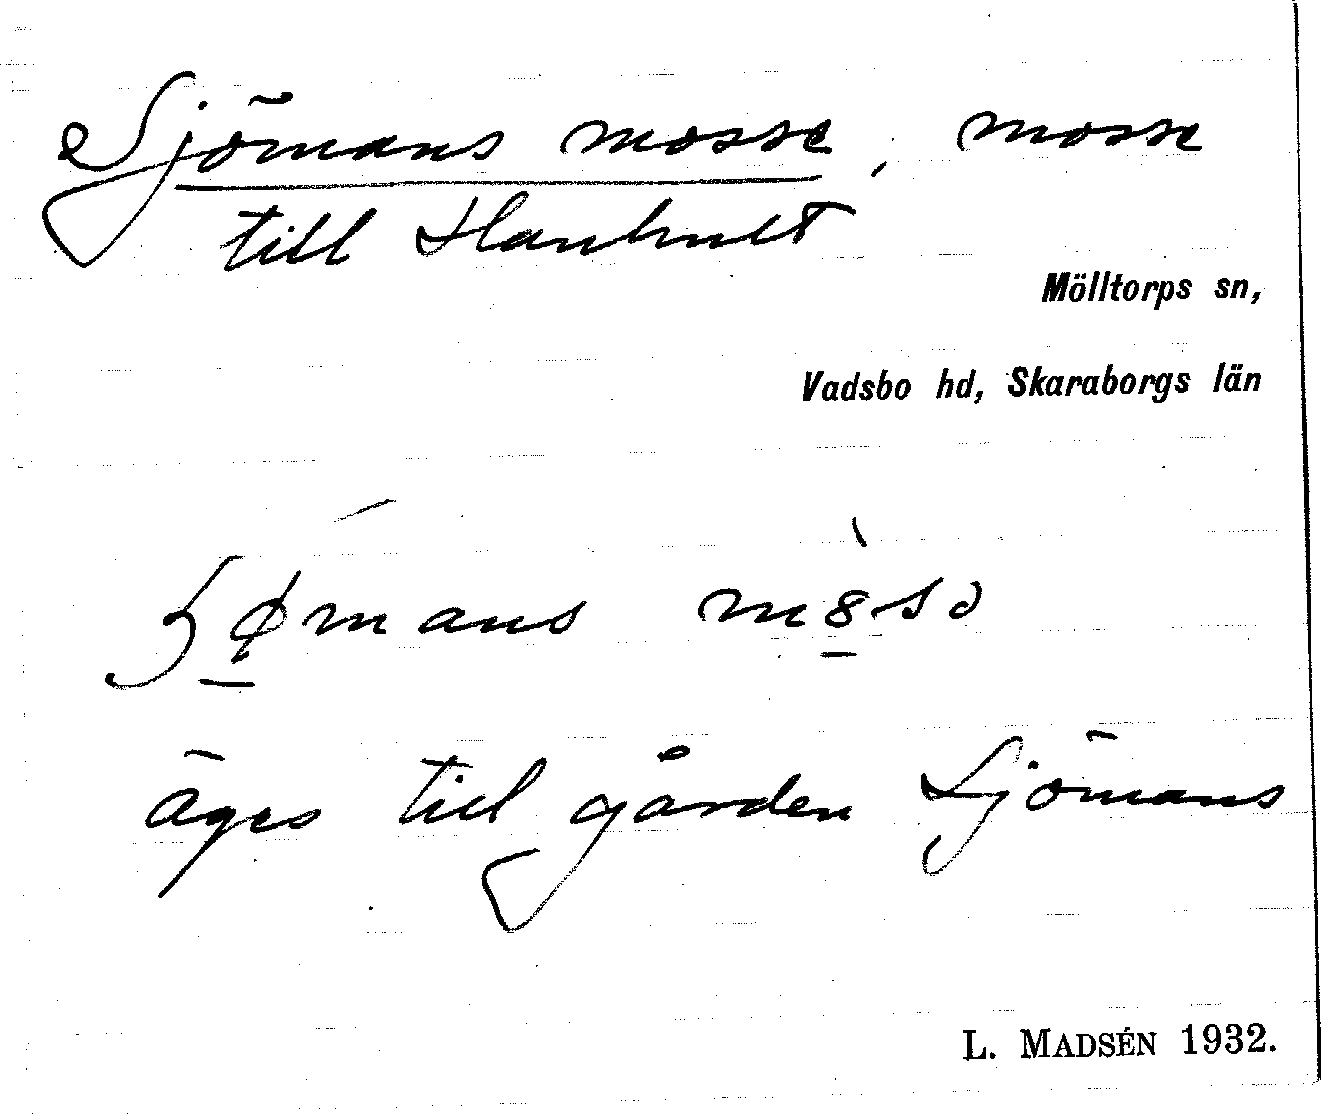 Sjömans mosse, mosse
till Hanhult
Mölltorps sn,
Vadsbo hd, Skaraborgs län
mans
äges till gården Sjömans
L. MADSÉN 1932.